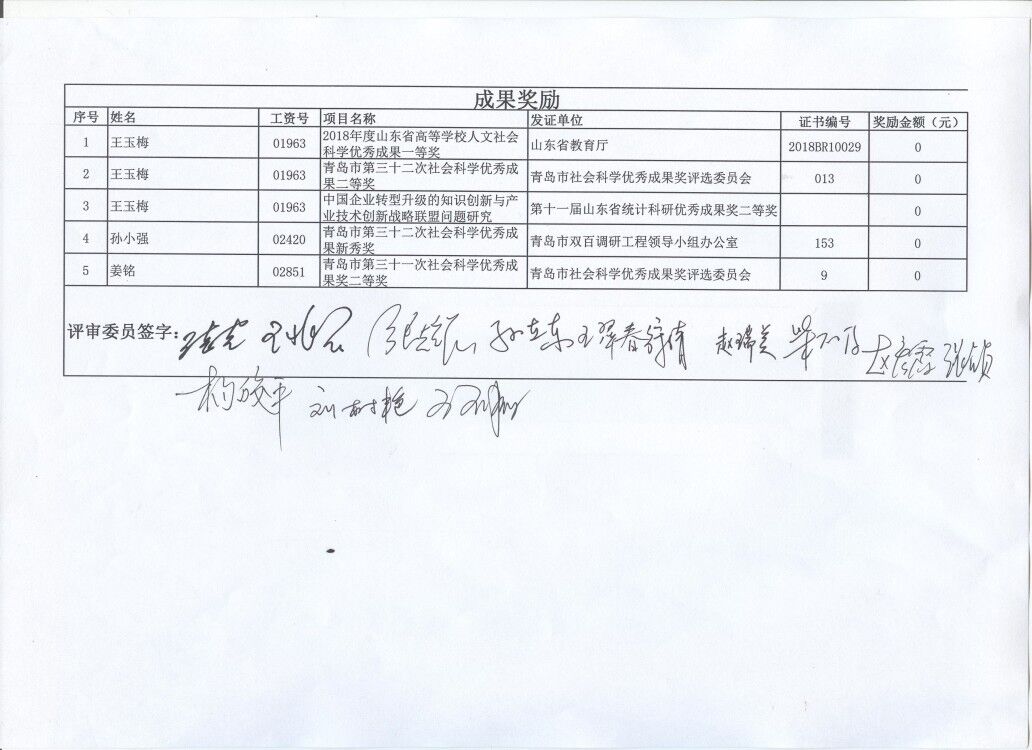 成果奖励
序号 姓名 工资号 项目名称 发证单位 证书编号 奖励金额（元）
1 王玉梅 01963 2018年度山东省高等学校人文社会科学优秀成果一等奖 山东省教育厅 2018BR10029 0
2 王玉梅 01963 青岛市第三十二次社会科学优秀成果二等奖 青岛市社会科学优秀成果奖评选委员会 013 0
3 王玉梅 01963 中国企业转型升级的知识创新与产业技术创新战略联盟问题研究 第十一届山东省统计科研优秀成果奖二等奖 0
4 孙小强 02420 青岛市第三十二次社会科学优秀成果新秀奖 青岛市双百调研工程领导小组办公室 153 0
5 姜铭 02851 青岛市第三十一次社会科学优秀成果奖二等奖 青岛市社会科学优秀成果奖评选委员会 9 0
评审委员签字： 赵瑞美
刘树艳